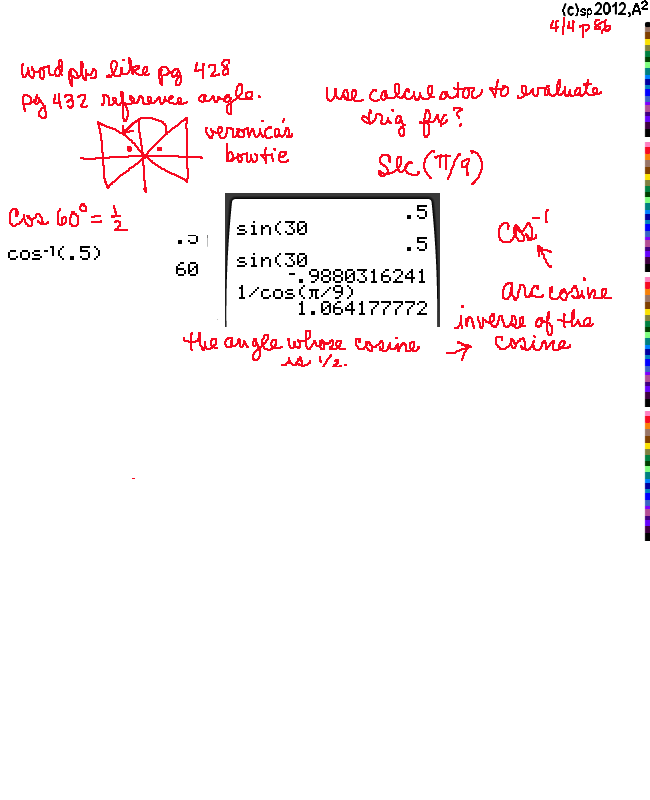 (c)sp2012,A²
4/4 p 8b
word pbs like pg 428
pg 432 reference angle.
veronica's
bowtie
use calculator to evaluate
trig fx?
Sec(π/9)
cos 60° = 1/2
cos⁻¹(.5)
.5
60
.5
sin(30
.5
sin(30
-.9880316241
1/cos(π/9)
1.064177772
cos⁻¹
arc cosine
inverse of the
cosine
the angle whose cosine →
is 1/2.